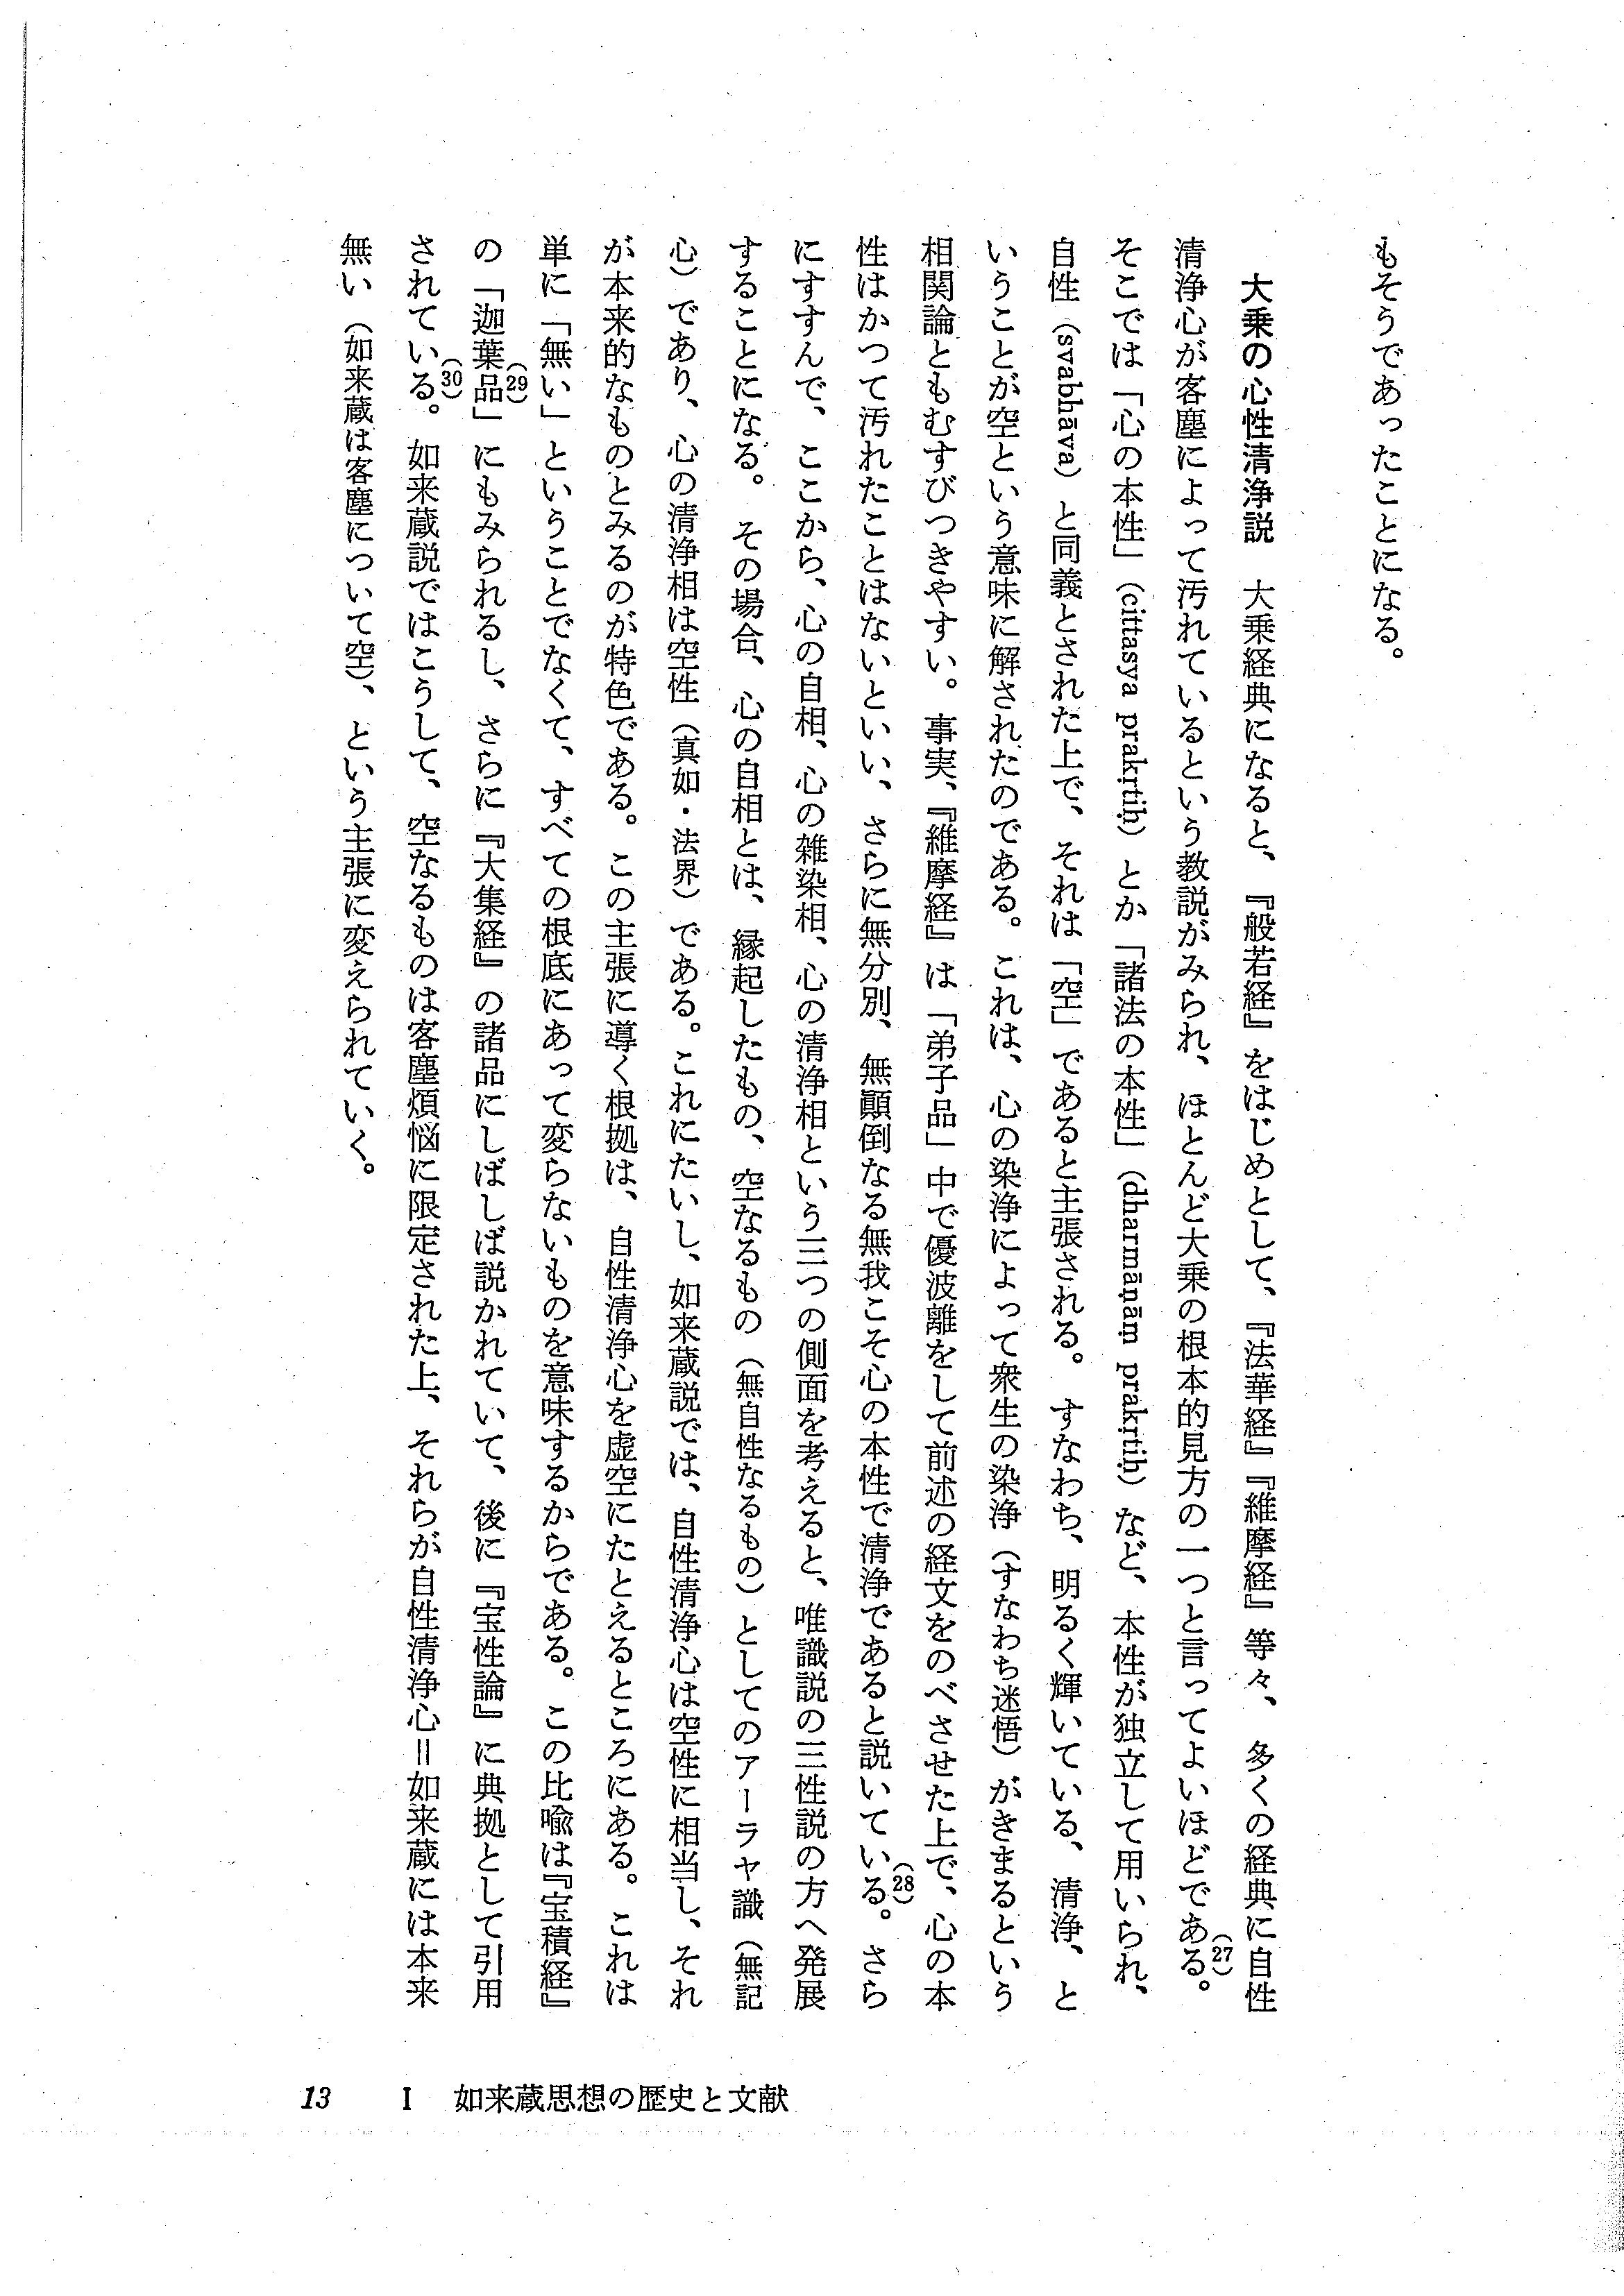 もそうであったことになる。
大乗の心性清浄説　大乗経典になると、『般若経』をはじめとして、『法華経』『維摩経』等々、多くの経典に自性
清浄心が客塵によって汚れているという教説がみられ、ほとんど大乗の根本的見方の一つと言ってよいほどである。(27)
そこでは「心の本性」（cittasya prakṛtiḥ）とか「諸法の本性」（dharmāṇāṃ prakṛtiḥ）など、本性が独立して用いられ、
自性（svabhāva）と同義とされた上で、それは「空」であると主張される。すなわち、明るく輝いている、清浄、と
いうことが空という意味に解されたのである。これは、心の染浄によって衆生の染浄（すなわち迷悟）がきまるという
相関論ともむすびつきやすい。事実、『維摩経』は「弟子品」中で優波離をして前述の経文をのべさせた上で、心の本
性はかつて汚れたことはないといい、さらに無分別、無顚倒なる無我こそ心の本性で清浄であると説いている。(28)さら
にすすんで、ここから、心の自相、心の雑染相、心の清浄相という三つの側面を考えると、唯識説の三性説の方へ発展
することになる。その場合、心の自相とは、縁起したもの、空なるもの（無自性なるもの）としてのアーラヤ識（無記
心）であり、心の清浄相は空性（真如・法界）である。これにたいし、如来蔵説では、自性清浄心は空性に相当し、それ
が本来的なものとみるのが特色である。この主張に導く根拠は、自性清浄心を虚空にたとえるところにある。これは
単に「無い」ということでなくて、すべての根底にあって変らないものを意味するからである。この比喩は『宝積経』
の「迦葉品」(29)にもみられるし、さらに『大集経』の諸品にしばしば説かれていて、後に『宝性論』に典拠として引用
されている。(30)如来蔵説ではこうして、空なるものは客塵煩悩に限定された上、それらが自性清浄心＝如来蔵には本来
無い（如来蔵は客塵について空）、という主張に変えられていく。
13　I　如来蔵思想の歴史と文献